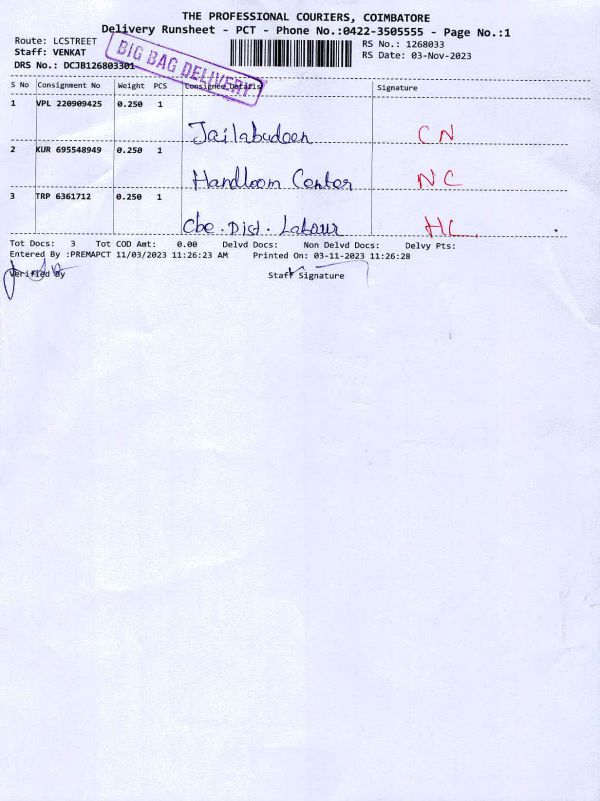 THE PROFESSIONAL COURIERS, COIMBATORE
Delivery Runsheet - PCT - Phone No.:0422-3505555 - Page No.:1
Route: LCSTREET
RS No.: 1268033
Staff: VENKAT
RS Date: 03-Nov-2023
DRS No.: DCJB126803301
BIG BAG DELIVERY
S No Consignment No Weight PCS Consignee Details Signature
1 VPL 220909425 0.250 1
Jailabudeen CN
2 KUR 695548949 0.250 1
Handloom Center NC
3 TRP 6361712 0.250 1
Cbe. Dist. Labour HL
Tot Docs: 3 Tot COD Amt: 0.00 Delvd Docs: Non Delvd Docs: Delvy Pts:
Entered By :PREMAPCT 11/03/2023 11:26:23 AM Printed On: 03-11-2023 11:26:28
Verified By Staff Signature